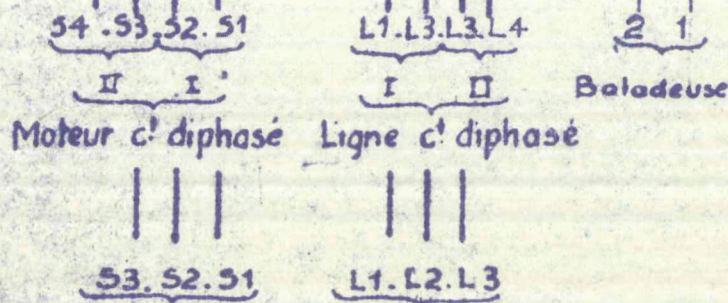 S4.S3.S2.S1 L1.L3.L3.L4 2 1
II I I II Baladeuse
Moteur ct diphasé Ligne ct diphasé
S3.S2.S1 L1.L2.L3